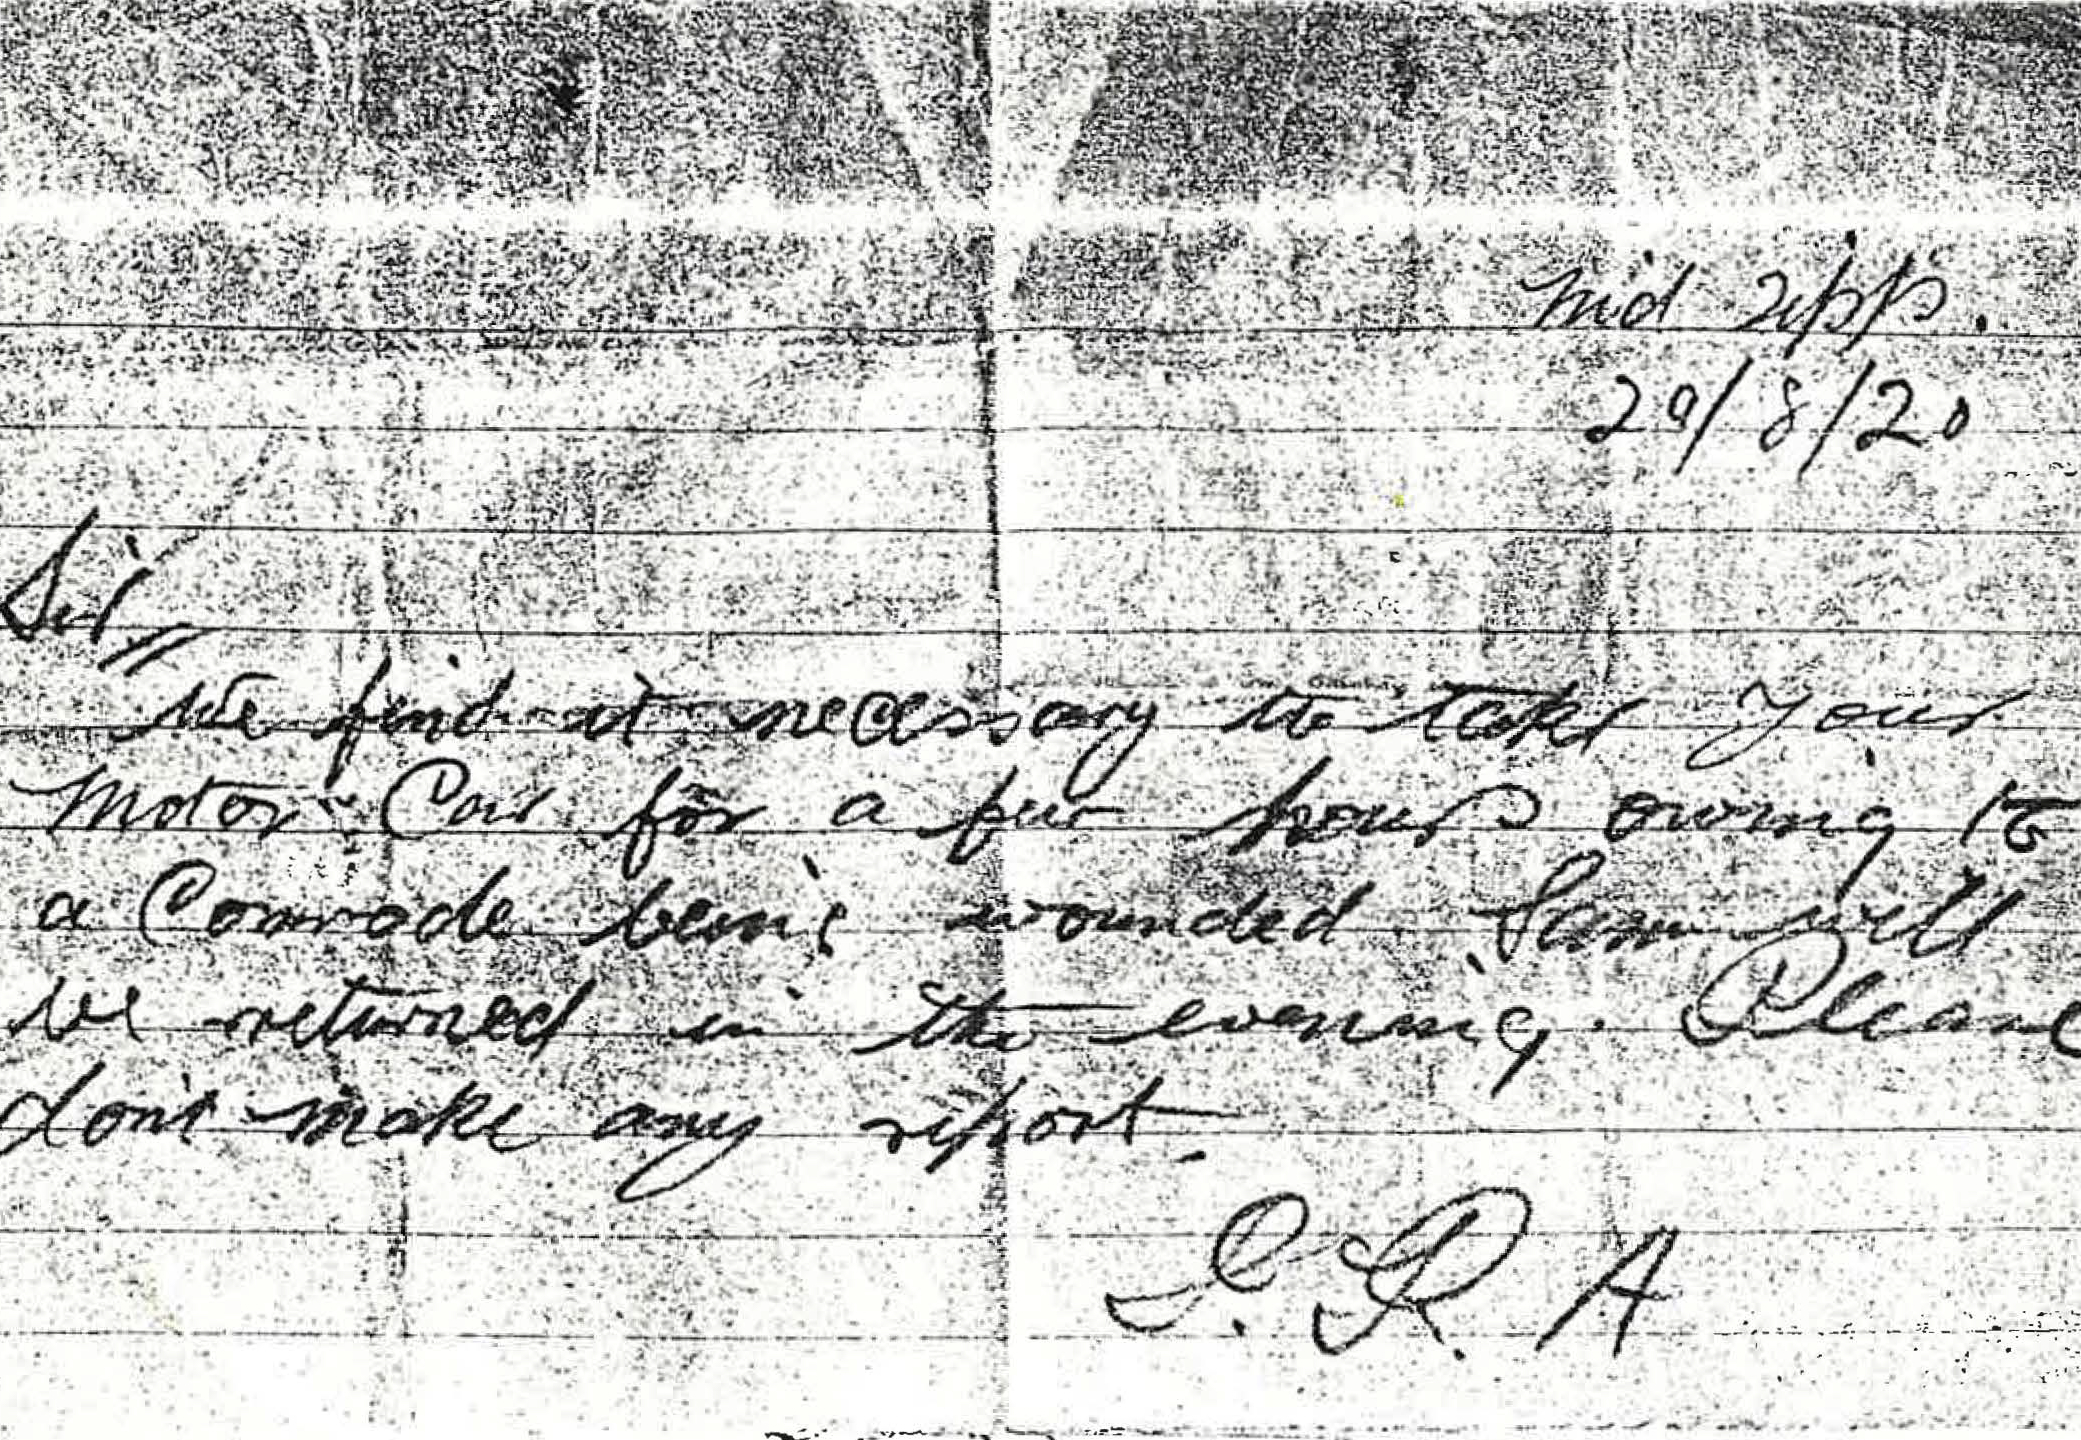 Mid Tipp.
20/8/20
Sir,
We find it necessary to take your
Motor Car for a few hours owing to
a Comrade being wounded. Same will
be returned in the evening. Please
don't make any report.
I. R. A